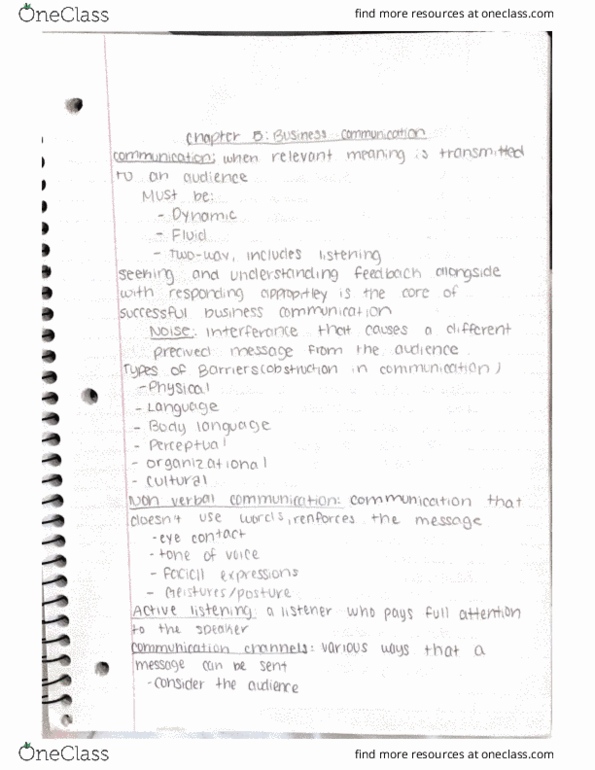 OneClass
find more resources at oneclass.com
chapter 5: Business communication
communication: when relevant meaning is transmitted
to an audience
Must be:
- Dynamic
- Fluid
- Two-way, includes listening
seeking and understanding feedback alongside
with responding appropitley is the core of
successful business communication
NOISE: interferance that causes a different
precived message from the audience
Types of Barriers(obstruction in communication)
- Physical
- Language
- Body language
- Perceptual
- organizational
- cultural
Non verbal communication: communication that
doesn't use words, renforces the message
- eye contact
- tone of voice
- faciall expressions
- Geistures/posture
Active listening: a listener who pays full attention
to the speaker
communication channels: various ways that a
message can be sent
- consider the audience
OneClass
find more resources at oneclass.com